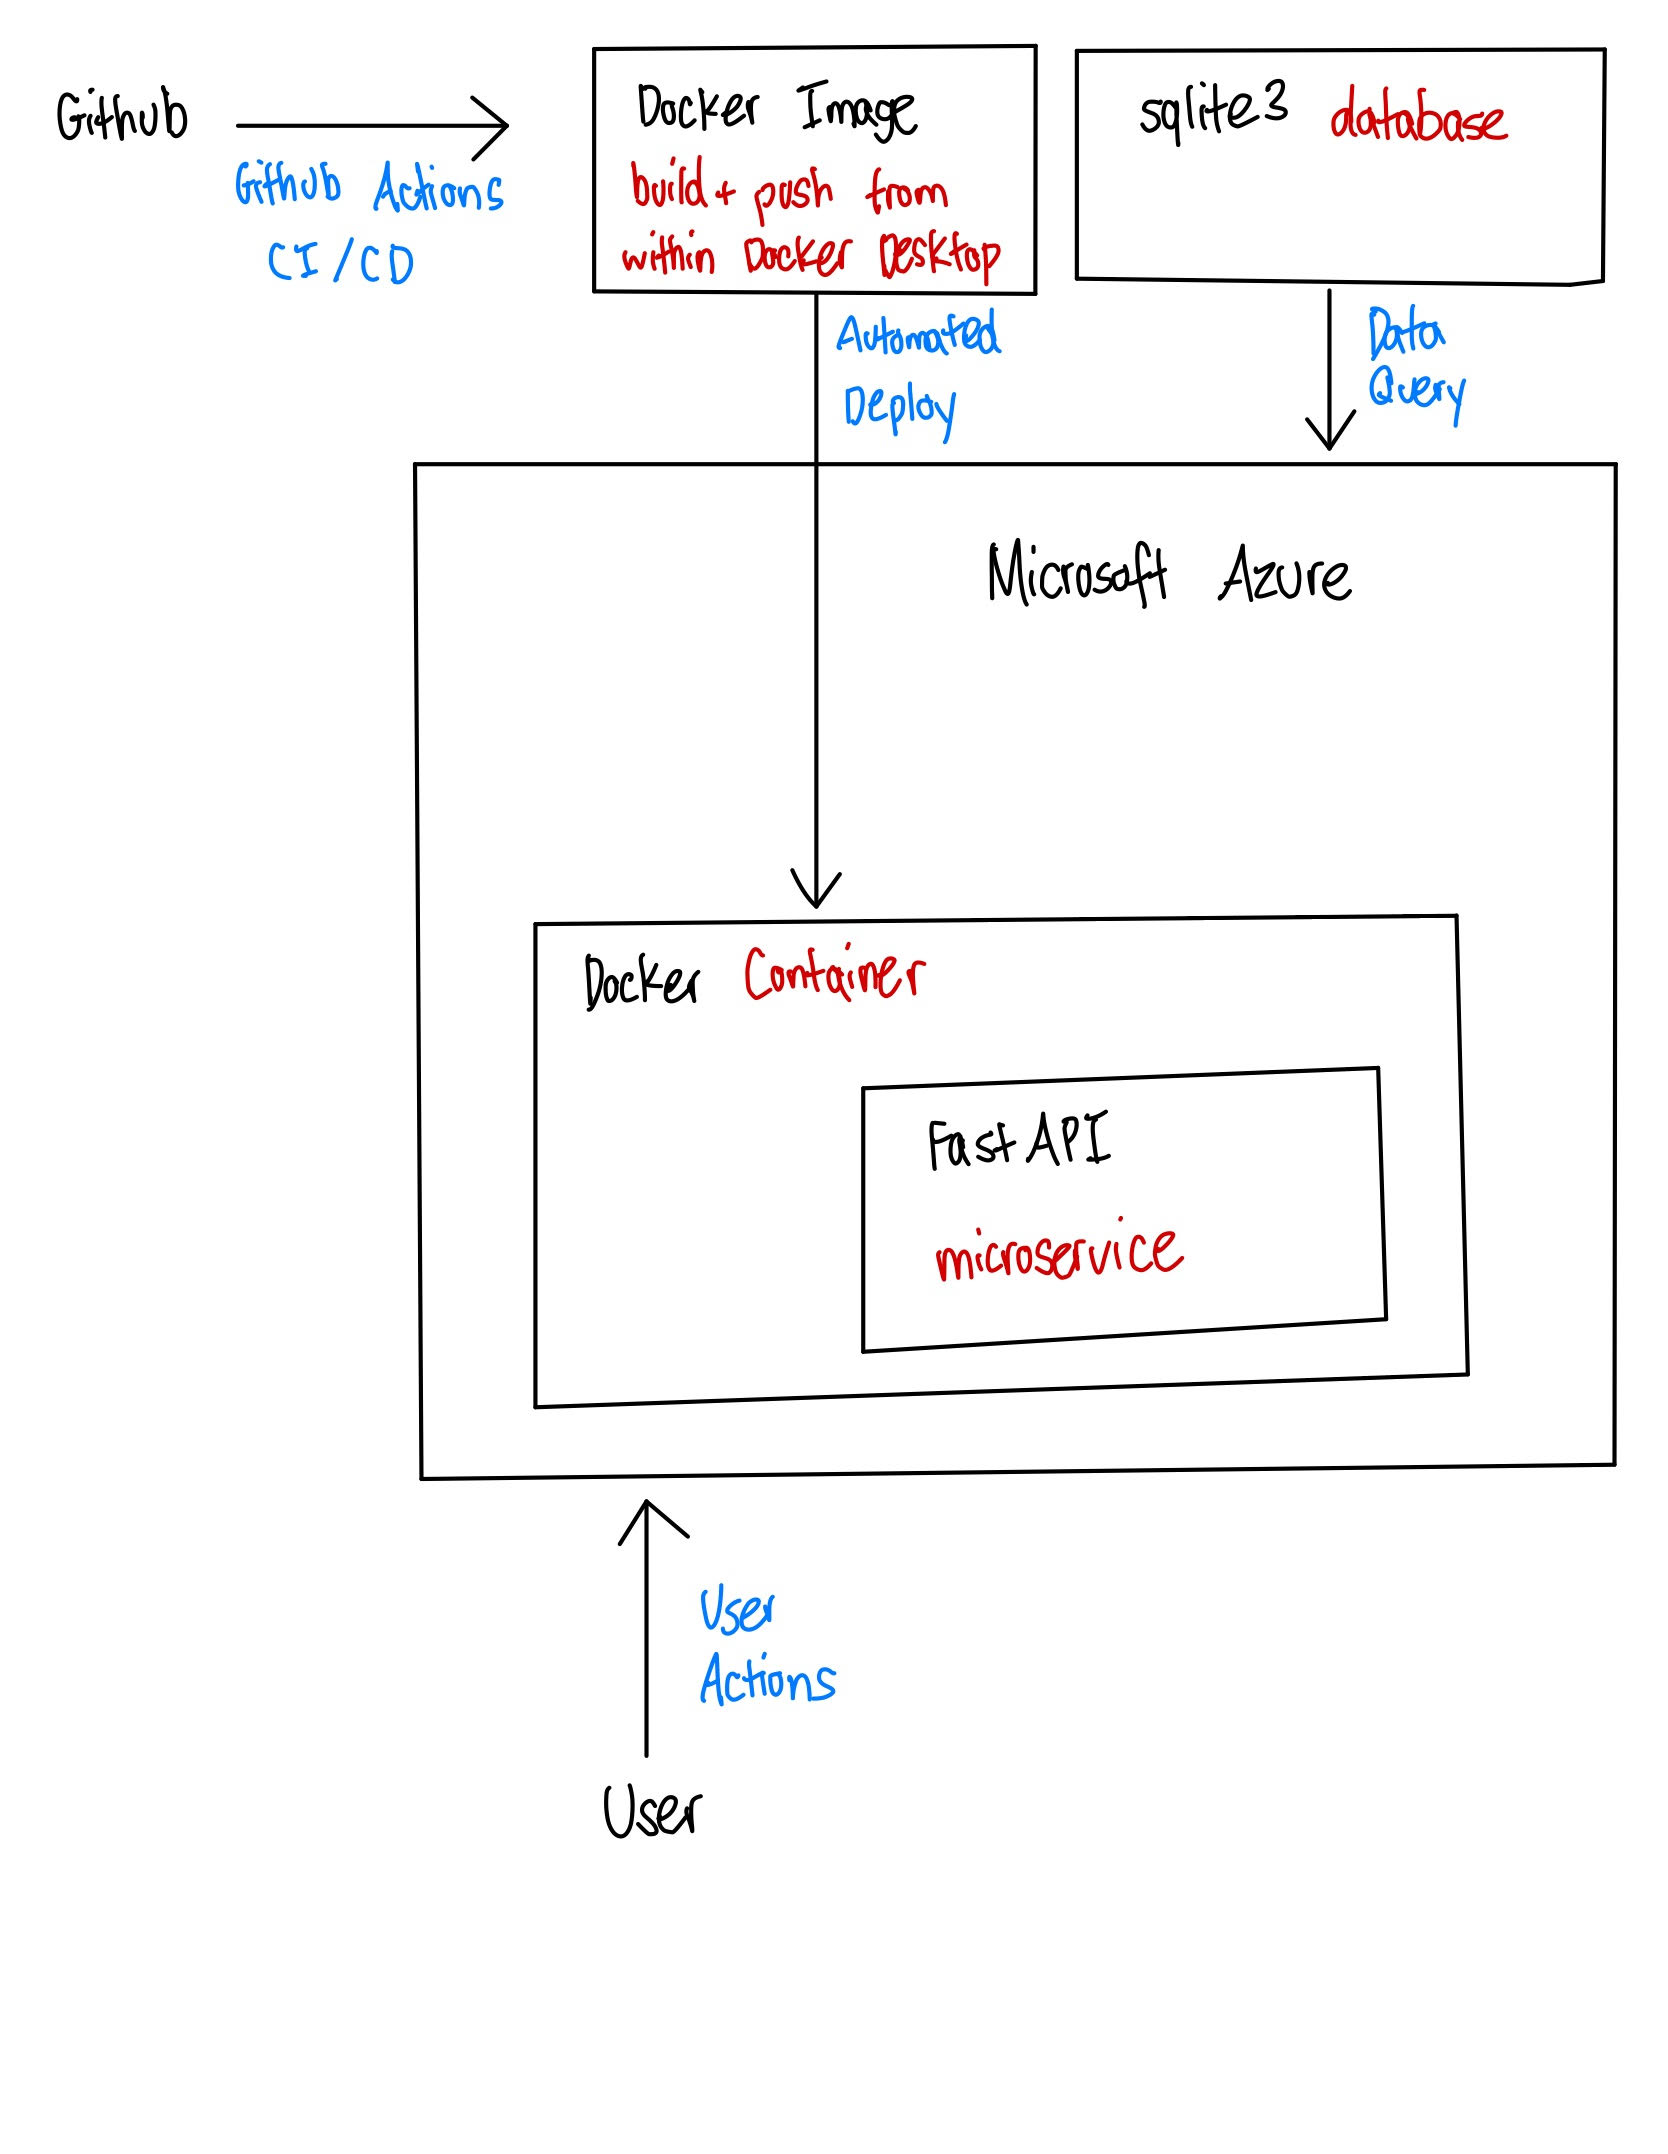 Github
Github Actions
CI/CD
Docker Image
build + push from
within Docker Desktop
sqlite3 database
Automated
Deploy
Data
Query
Microsoft Azure
Docker Container
FastAPI
microservice
User
Actions
User